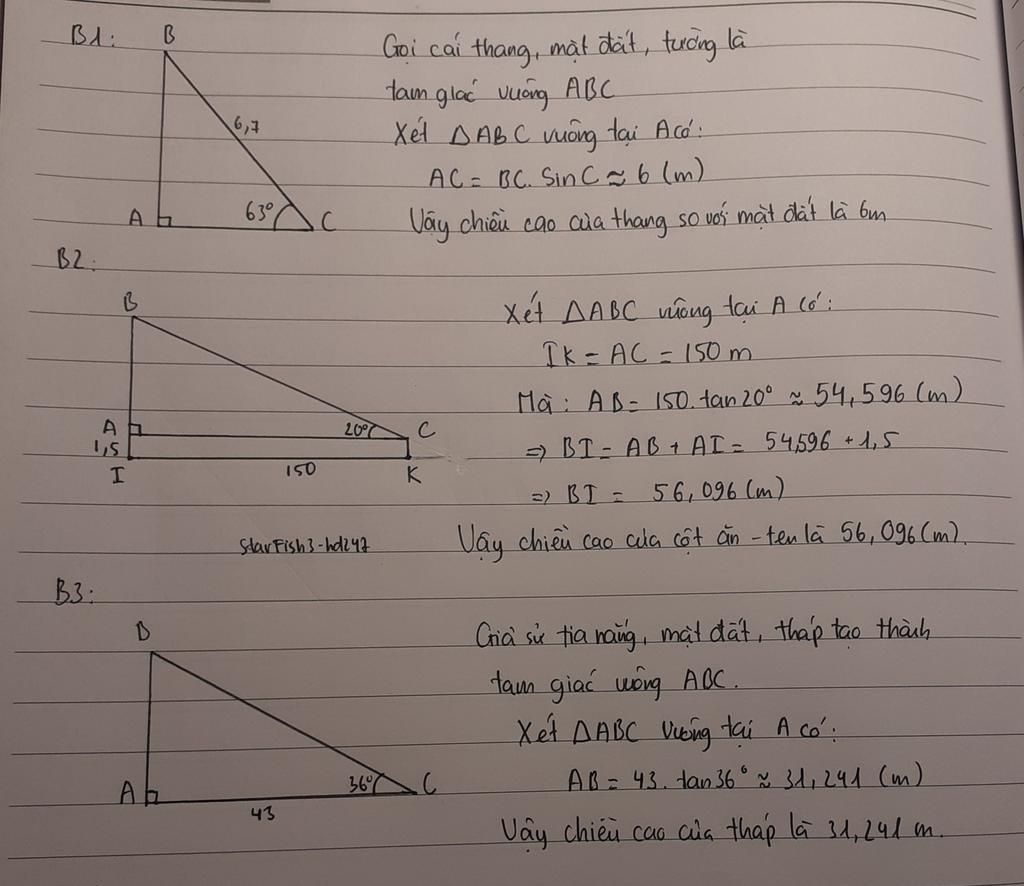 B1:
B
6,7
A
63°
C
Gọi cái thang, mặt đất, tường là
tam giác vuông ABC
Xét ΔABC vuông tại A có:
AC = BC. SinC ≈ 6 (m)
Vậy chiều cao của thang so với mặt đất là 6m
B2:
B
A
20°
C
1,5
I
150
K
Xét ΔABC vuông tại A có:
IK = AC = 150 m
Mà: AB = 150. tan20° ≈ 54,596 (m)
=> BI = AB + AI = 54,596 + 1,5
=> BI = 56,096 (m)
Vậy chiều cao của cột ăn-ten là 56,096 (m).
StarFish3-hd247
B3:
B
A
36°
C
43
Giả sử tia nắng, mặt đất, tháp tạo thành
tam giác vuông ABC.
Xét ΔABC vuông tại A có:
AB = 43. tan36° ≈ 31,241 (m)
Vậy chiều cao của tháp là 31,241 m.